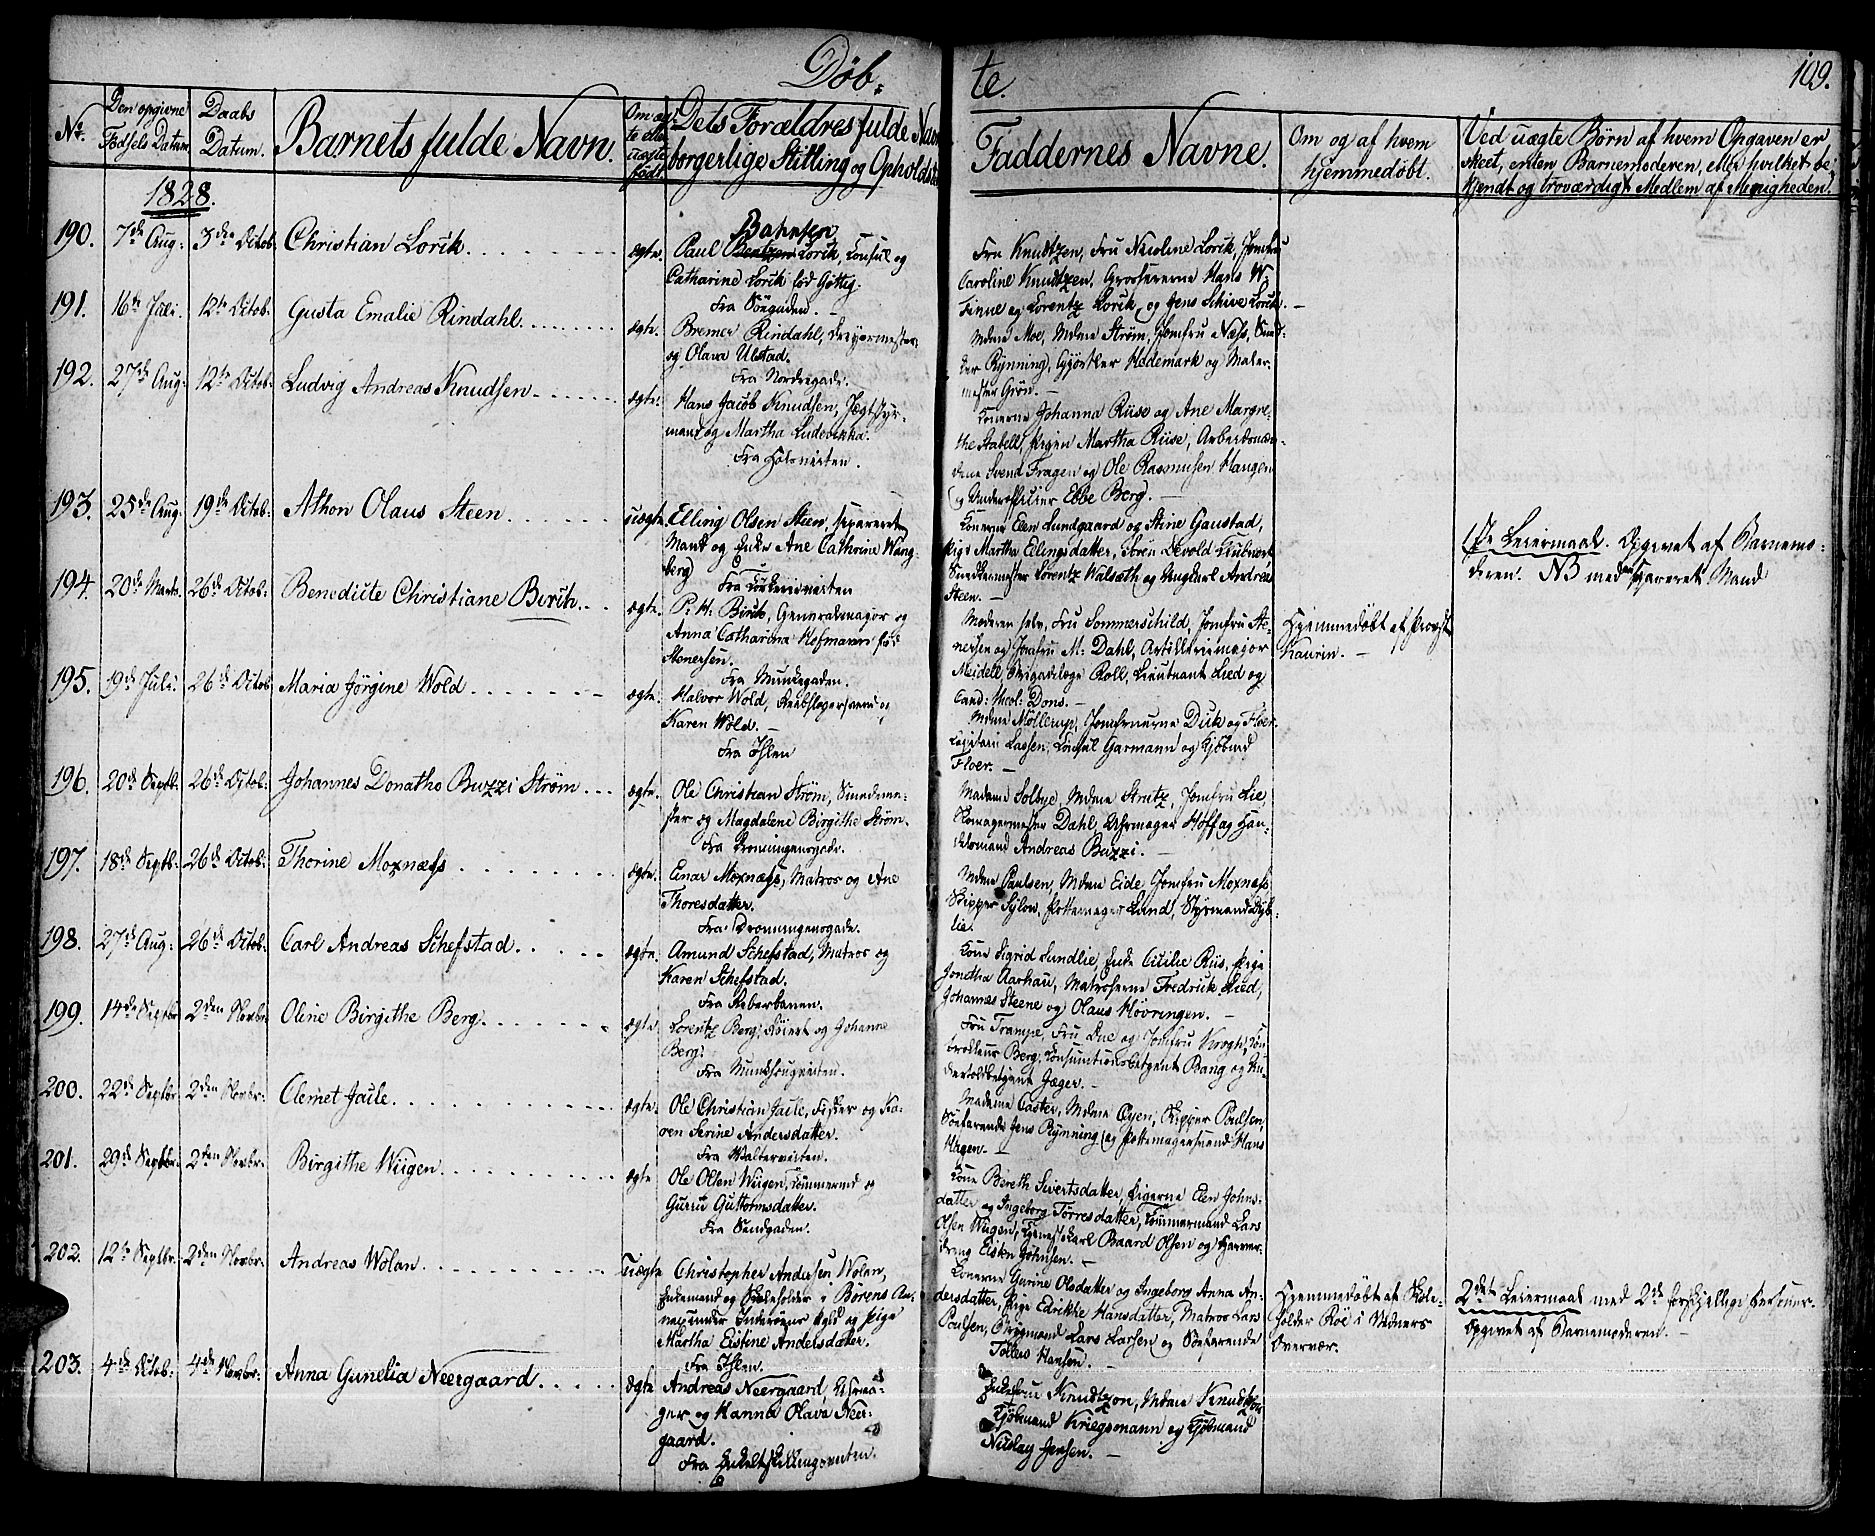 Døb-
te.
109.
No.
Den opgivne Fødsels Datum
Daabs Datum.
Barnets fulde Navn.
Om ægte eller uægte født
Dets Forældres fulde Navn borgerlige Stilling og Opholdsted
Faddernes Navne.
Om og af hvem hjemmedøbt.
Ved uægte Børn af hvem Opgaven er
skeet, enten Barnemoderen, eller hvilket be-
kjendt og troværdigt Medlem af Menigheden.
1828.
190. 7de Aug: 3die Octob: Christian Lorck
ægte.
Bahnsen
Paul Lorck, Consul og
Catharine Lorck
Fra Søegaden.
Fru Knudtzon, Fru Nicoline Lorck, Jomfru
Caroline Knudtzen, Grosererne Hans W.
Finne og Lorentz Lorck, og Jens Schive Lorck.
191. 16de Juli. 12te Octob: Gusta Emalie Rindahl
ægte.
Bremer Rindahl, Dreyermester
og Olava Ulstad.
Fra Nordregade.
Mdme Moe, Mdme Strøm, Jomfru Næss,
Rynning, Gjørtler Hedemark og Maler-
mester Grøn.
192. 27de Aug: 12te Octob: Ludvig Andreas Knudsen
ægte.
Hans Jacob Knudsen, Jægtstyr-
mand og Martha Ludevikka.
Konerne Johanna Riise og Ane Margre-
the Stabell, Pigen Martha Riise, Arbeidsmæn-
dene Svend Fragen og Ole Rasmusen Haugen
og Underofficier Ebbe Berg.
193. 25de Aug: 19de Octob: Athon Olaus Steen
uægte.
Elling Olsen Steen, separeret
Mand og Enke Ane Cathrine Wang-
berg
Konerne Elen Lundgaard og Stine Gaustad,
Pige Martha Ellingsdatter, Søren Devold
Snedkermester Lorentz Walseth og Ungkarl Andreas
Steen.
1ste Leiermaal. Opgivet af Barnemo-
deren. NB med separeret Mand
194. 20de Marts. 26de Octob: Benedicte Christiane Birch
ægte.
P. H. Birch, Generalmajor og
Anna Catharina Hofmann fød
Stenersen.
Fra Munkegaden.
Moderen selv, Fru Sommerschild, Jomfru Ste-
nersen og Jomfru M: Dahl, Artillerimajor
Meidell, Brigadelæge Roll, Lieutnant Lied og
Cand: Theol: Dons.
Hjemmedøbt af Provst
Kaurin.
195. 19de Juli. 26de Octob: Maria Jørgine Wold
ægte.
Halvor Wold, Rebslagersvend og
Karen Wold.
Fra Ihlen
Mdme Møllerup, Jomfruerne Dick og Floer.
Lassen, Consul Garmann og Kjøbmd
Floer.
196. 20de Septb. 26de Octob: Johannes Donatho Buzzi Strøm
ægte.
Ole Christian Strøm, Smedeme-
ster og Magdalene Birgithe Strøm.
Fra Dronningensgade.
Madame Solbye, Mdme Strutz, Jomfru Lie,
Skomagermester Dahl, Uhrmager Hoff og Han-
delsmand Andreas Buzzi.
197. 18de Septb: 26de Octob: Thorine Moxnæss
ægte.
Einar Moxnæss, Matros og Ane
Thoresdatter.
Fra Dronningensgade.
Mdme Paulsen, Mdme Eide, Jomfru Moxnæss
Skipper Sylow, Pottemager Lund, Styrmand
198. 27de Aug: 26de Octob: Carl Andreas Schefstad
ægte.
Amund Schefstad, Matros og
Karen Schefstad.
Fra Reberbanen.
Kone Sigrid Lundlie, Enke Cicilie Riis, Pige
Jondtha Aarhau, Matroserne Fredrick Lied,
Johannes Steene og Olaus Høvringen.
199. 14de Septbr 2den Novbr: Oline Birgithe Berg
ægte.
Lorentz Berg, og Johanne
Berg.
Fru Trampe, Fru Due og Jomfru Krogh, Con-
trolleur Berg, Consumtionsbetjent Bang og Un-
dertoldbetjent Jæger.
200. 22de Septbr. 2den Novbr: Clemet Jaile
ægte.
Ole Christian Jaile, Fisker og Ka-
ren Serine Andersdatter.
Madame Caster, Mdme Øyen, Skipper Poulsen,
Søefarende Jens Rynning og Pottemagersvend Hans
Hagen.
201. 29de Septbr. 2den Novbr. Birgithe Wiigen
ægte
Ole Olsen Wiigen, Tømmermd og
Gurru Guttormsdatter.
Fra Sandgaden.
Kone Bereth Sivertsdatter, Pigerne Elen Johns-
datter og Ingeborg Torresdatter, Tømmermand Lars
Olsen Wiigen, Tjenestekarl Baard Olsen og
dreng Johnsen.
202. 12te Septbr. 2den Novbr. Andreas Wolan
uægte
Christopher Andersen Wolan,
Enkemand og Skoleholder i Børens An-
nex under Inderøens Gjeld og Pige
Martha Elstine Andersdatter.
Fra Ihlen.
Konerne Gurine Olsdatter og Ingeborg Anna An-
dersdatter, Pige Edvikke Hansdatter, Matros Lars
Poulsen, Lars Larsen og Søefarende
Tolless Hansen.
Hjemmedøbt af Skole-
holder Roe i Vidners
Overvær.
2det Leiermaal med 2de forskjellige Personer.
Opgivet af Barnemoderen.
203. 4de Octob: 4de Novbr. Anna Gunelia Neergaard
ægte
Andreas Neergaard, Uhrma-
ger og Hanna Olava Neer-
gaard.
Fra Enkeltskillingsveiten.
Enkefrue Knudtzon, Mdme Knudtzon
Kjøbmand Kriegsmann og Kjøbmand
Nicolay Jensen.